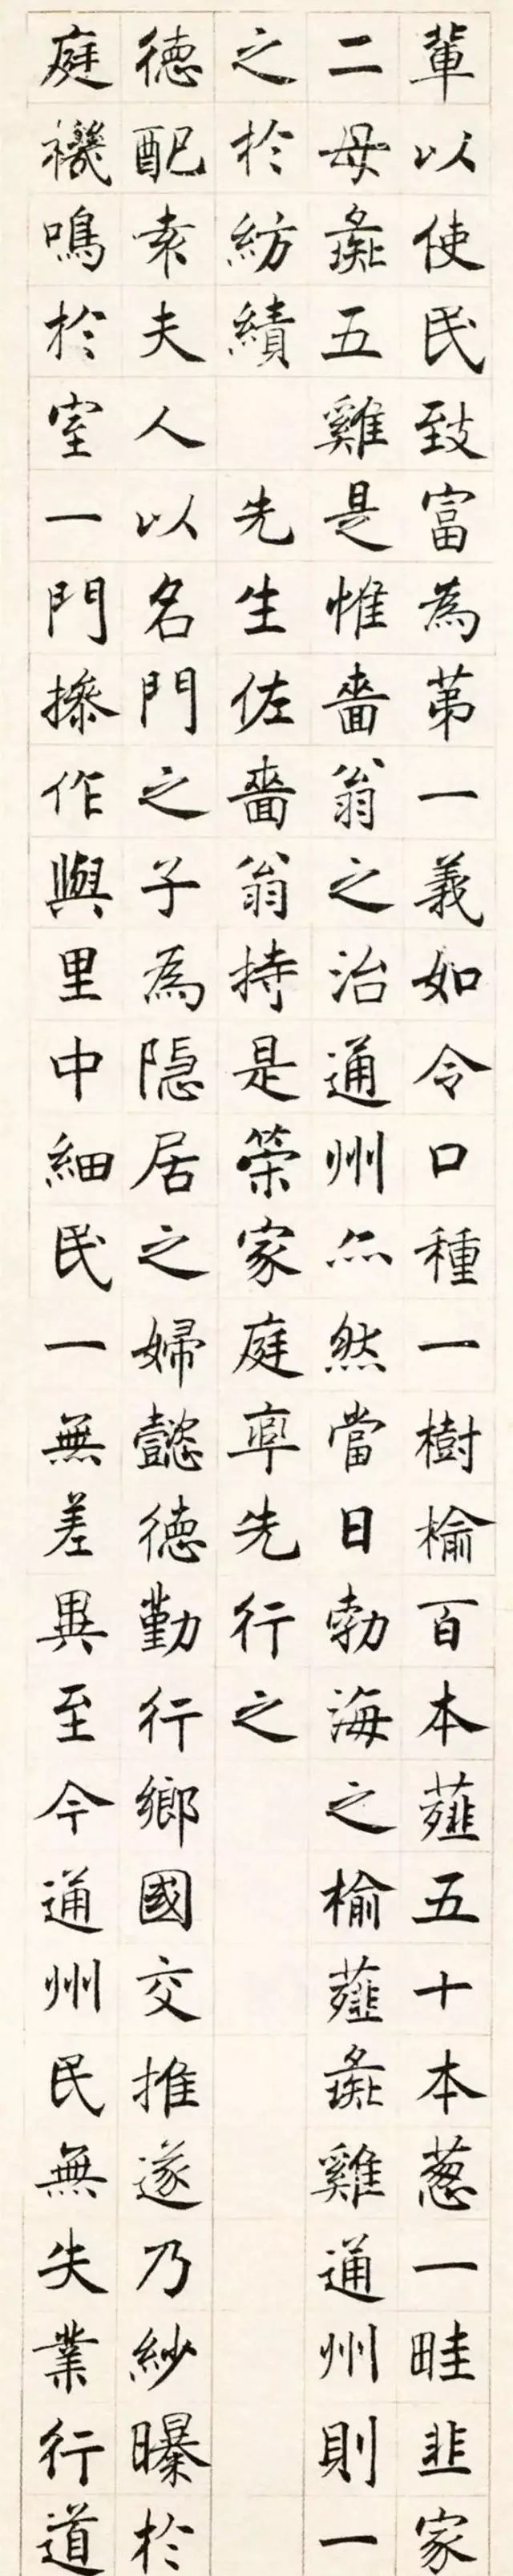 輩以使民致富為苐一義如令口種一樹榆百本薤五十本葱一畦韭家
二母彘五雞是惟嗇翁之治通州亦然當日勃海之榆薤彘雞通州則一
之於紡績 先生佐嗇翁持是策家庭率先行之
德配袁夫人以名門之子為隱居之婦懿德勤行鄉國交推遂乃紗曝於
庭機鳴於室一門操作與里中細民一無差異至今通州民無失業行道